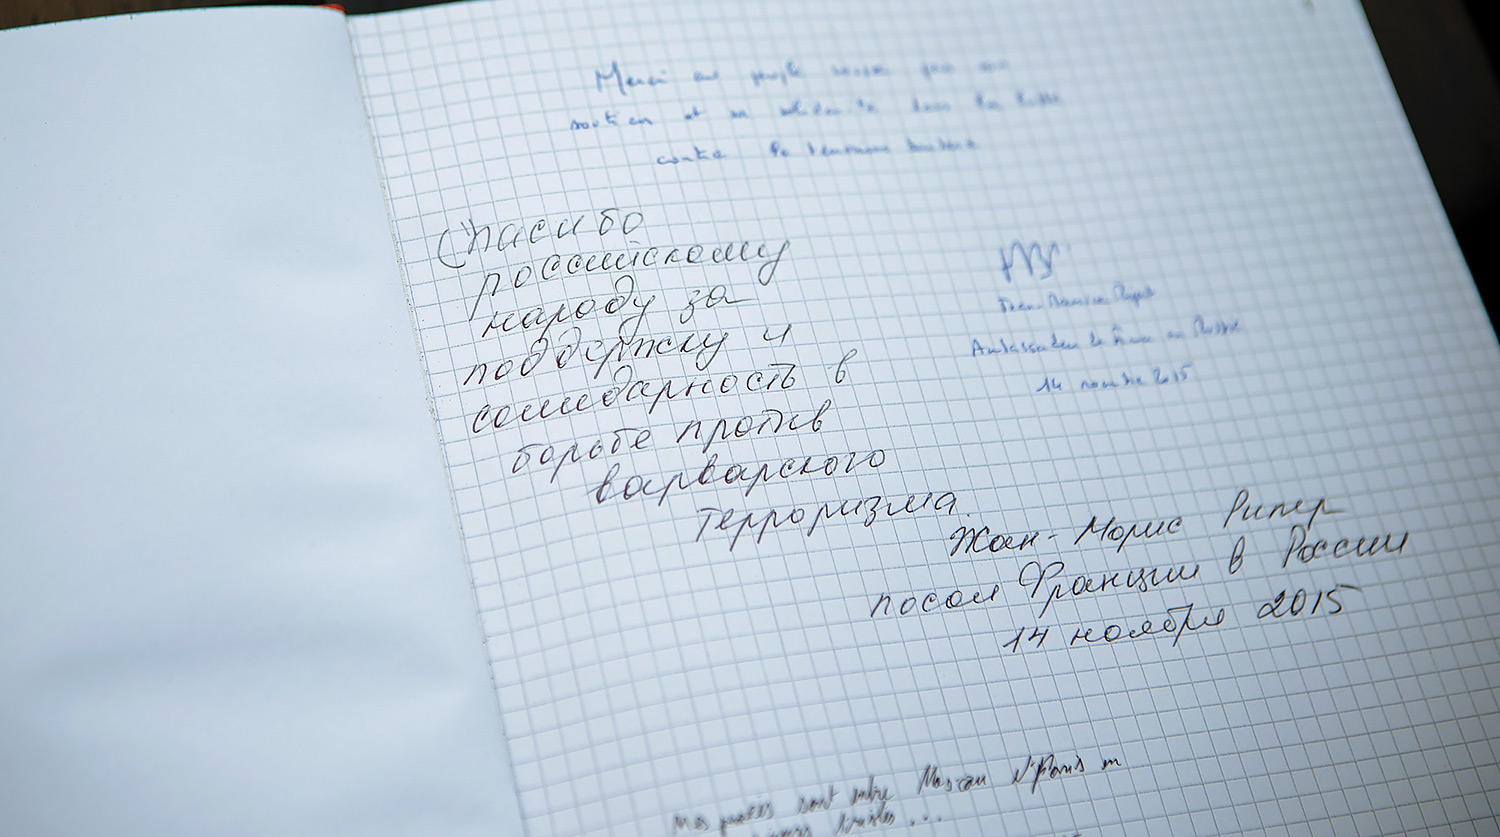 Merci au peuple russe pour son
soutien et sa solidarité dans la lutte
contre le terrorisme barbare
Спасибо
российскому
народу за
поддержку и
солидарность в
борьбе против
варварского
терроризма.
Jean-Maurice Ripert
Ambassadeur de France en Russie
14 novembre 2015
Жан-Морис Рипер
посол Франции в России
14 ноября 2015
Mes pensées sont entre Moscou et Paris en